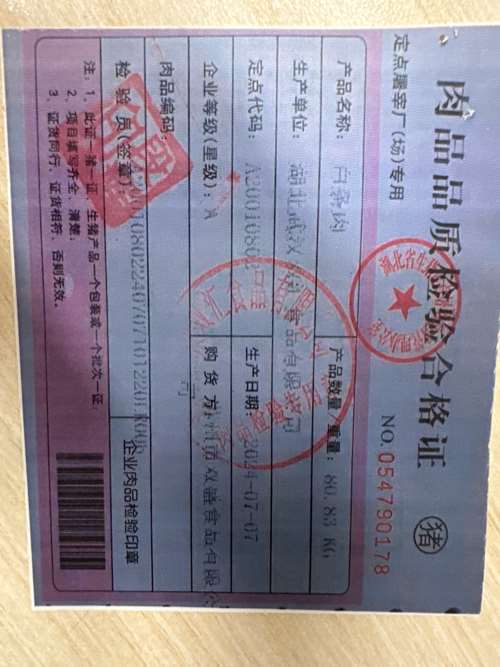 肉品品质检验合格证
猪
定点屠宰厂(场)专用
NO.054790178
产品名称: 白条肉
产品数量/重量: 80.83 KG
生产单位: 湖北武汉 食品有限公司
定点代码: A20010802
生产日期: 2024-07-07
企业等级(星级): A
购货方: 食品有限公司
肉品编码:
检验员(签章):
企业肉品检验印章
注: 1、此证一猪一证, 生猪产品一个包装或一个批次一证.
2、项目填写齐全、清楚.
3、证货同行、证货相符、否则无效。